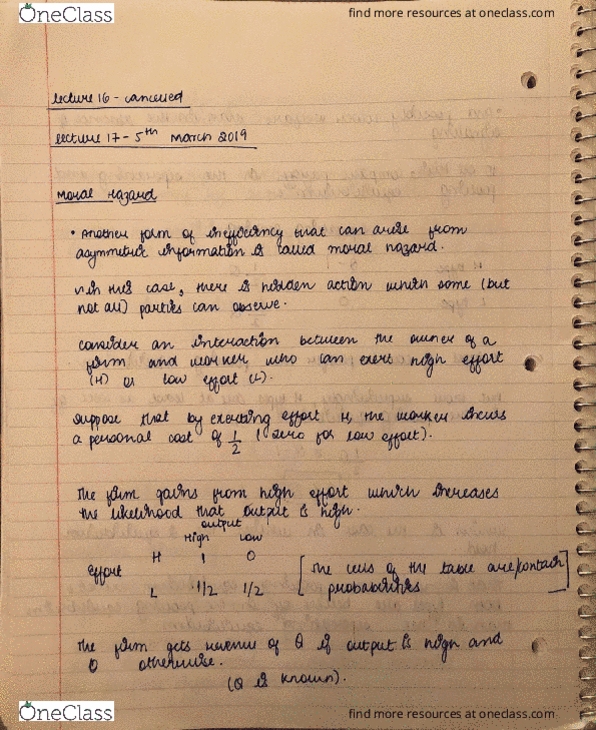 OneClass
find more resources at oneclass.com
lecture 16 - cancelled
lecture 17 - 5th March 2019
Moral Hazard
• Another form of inefficiency that can arise from
asymmetric information is called moral hazard.
In this case, there is hidden action which some (but
not all) parties can observe.
Consider an interaction between the owner of a
firm and worker who can exert high effort
(H) or low effort (L).
Suppose that by exerting effort H, the worker incurs
a personal cost of 1/2 (zero for low effort).
The firm gains from high effort which increases
the likelihood that output is high.
output
High Low
H 1 0
Effort [The cells of the table are/contain
L 1/2 1/2 probabilities]
The firm gets revenue of Q if output is high and
0 otherwise.
(Q is known).
OneClass
find more resources at oneclass.com